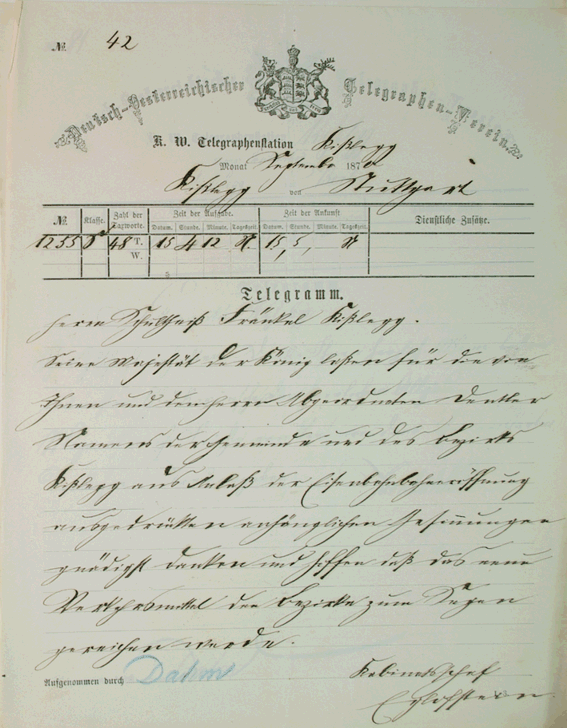 № 42
Deutsch-Oesterreichischer Telegraphen-Verein.
K. W. Telegraphenstation Kißlegg
Monat September 187
Kißlegg von Stuttgart
№ Klasse. Zahl der Taxworte. Zeit der Aufgabe. Zeit der Ankunft Dienstliche Zusätze.
Datum. Stunde. Minute. Tageszeit. Datum. Stunde. Minute. Tageszeit.
1255 S 48 T. 15 4 12 N. 15 5 N
W.
Telegramm.
Herrn Schultheiß Fränkel Kißlegg.
Seine Majestät der König laßen für die von
Ihnen und dem Herrn Abgeordneten Dentler
Namens der Gemeinde und des Bezirks
Kißlegg aus Anlaß der Eisenbahneröffnung
ausgedrückten anhänglichen Gesinnungen
gnädigst danken und hoffen daß das neue
Verkehrsmittel dem Bezirke zum Segen
gereichen werde.
Kabinetschef
Egloffstein
Aufgenommen durch